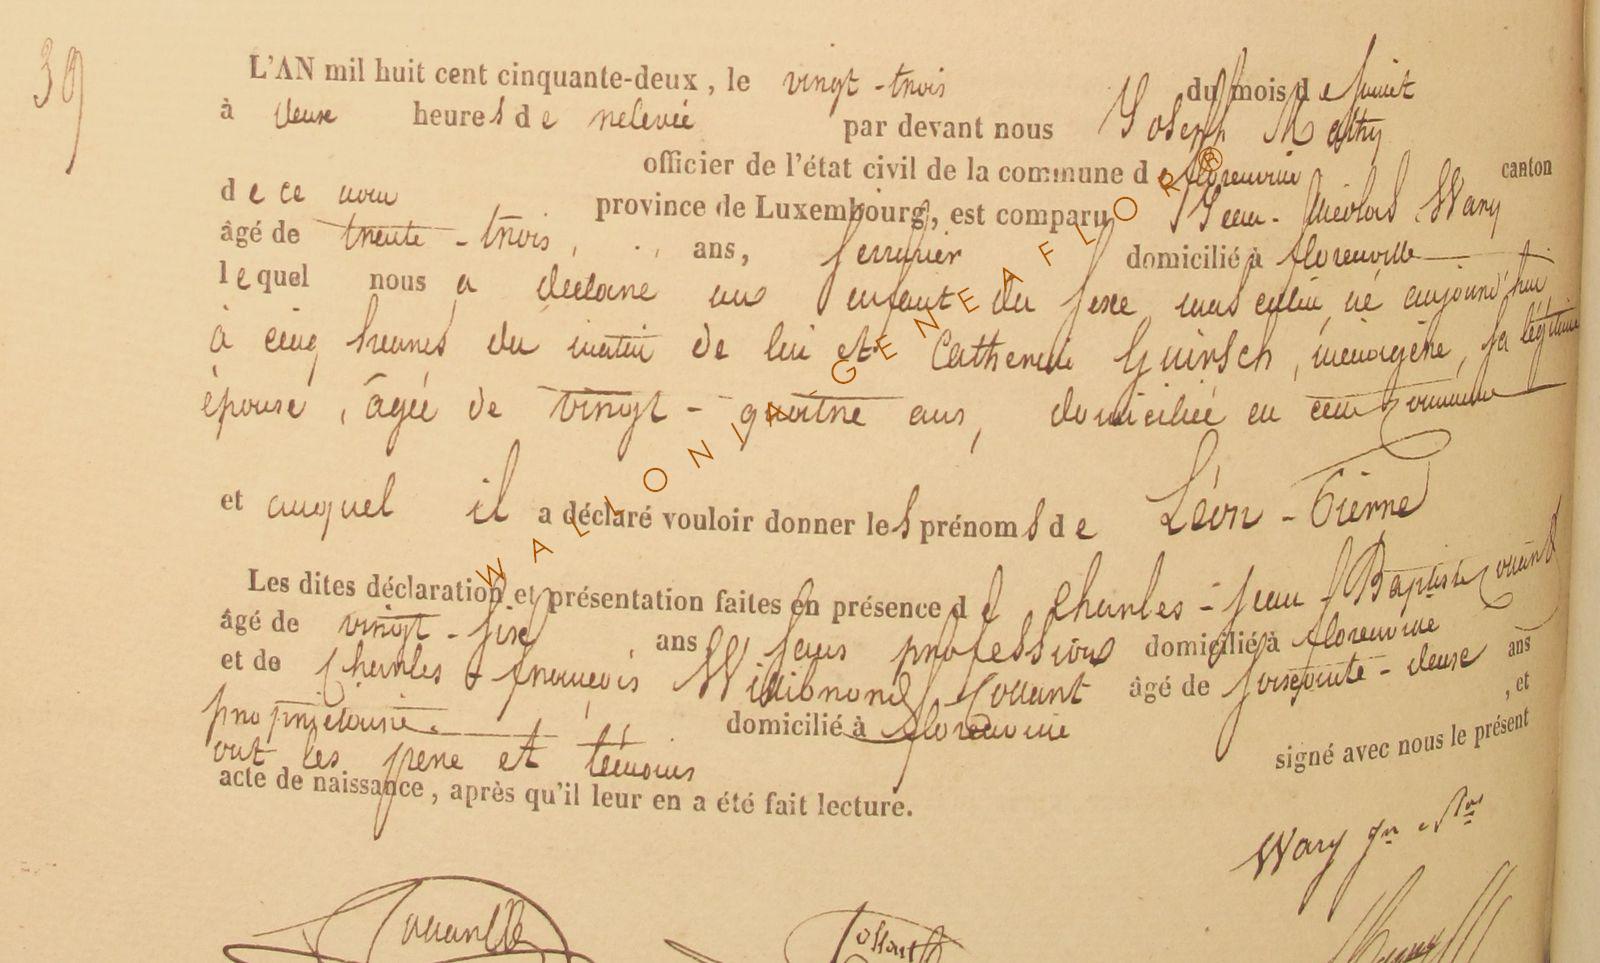 39
L'AN mil huit cent cinquante-deux, le vingt-trois du mois de
à deux heures de relevée par devant nous Joseph Mathy
officier de l'état civil de la commune de florenville canton
de ce nom province de Luxembourg, est comparu Jean-Nicolas Wary
âgé de trente-trois ans, serrurier domicilié à florenville
lequel nous a déclaré un enfant du sexe masculin, né aujourd'hui
à cinq heures du matin de lui et Catherine Guirsch, ménagère, sa légitime
épouse, âgée de vingt-quatre ans, domiciliée en cette commune
et auquel il a déclaré vouloir donner les prénoms de Léon-Pierre
Les dites déclaration et présentation faites en présence de Charles-Jean-Baptiste
âgé de vingt-six ans, sans profession domicilié à florenville
et de Charles-françois âgé de soixante-deux ans
propriétaire. domicilié à florenville , et
ont les père et témoins signé avec nous le présent
acte de naissance, après qu'il leur en a été fait lecture.
Wary
WALLONIA-GENEAFLOR®